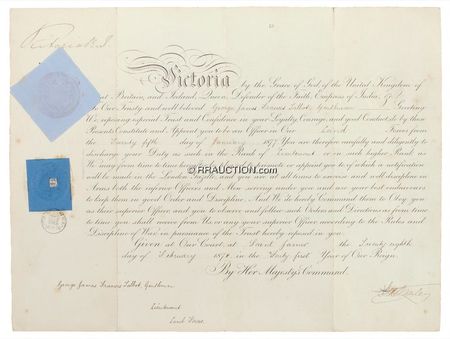 Victoria R.I.
Victoria by the Grace of God, of the United Kingdom of
Great Britain, and Ireland, Queen, Defender of the Faith, Empress of India, &c.
To Our Trusty and well beloved George James Francis Talbot, Gentleman Greeting
We, reposing especial Trust and Confidence in your Loyalty, Courage, and good Conduct, do by these
Presents Constitute and Appoint you to be an Officer in Our Land Forces from
the Twenty fifth day of January 1877. You are therefore carefully and diligently to
discharge your Duty as such in the Rank of Lieutenant or in such higher Rank as
We may from time to time hereafter promote or appoint you to, of which a notification
will be made in the London Gazette, and you are at all times to exercise and well discipline in
Arms both the inferior Officers and Men serving under you and use your best endeavours
to keep them in good Order and Discipline. And We do hereby Command them to Obey you
as their superior Officer, and you to observe and follow such Orders and Directions as from time
to time you shall receive from Us, or any your superior Officer, according to the Rules and
Discipline of War, in pursuance of the Trust hereby reposed in you.
Given at Our Court, at Saint James's the Twenty eighth
day of February 187 in the Forty first Year of Our Reign
By Her Majesty's Command.
George James Francis Talbot, Gentleman
Lieutenant
Land Forces
©RRAUCTION.COM